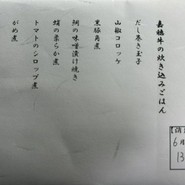 嘉穂牛の炊き込みごはん
だし巻き玉子
山椒コロッケ
黒豚角煮
鯛の味噌漬け焼き
蛸の柔らか煮
トマトのシロップ煮
がめ煮
6
13